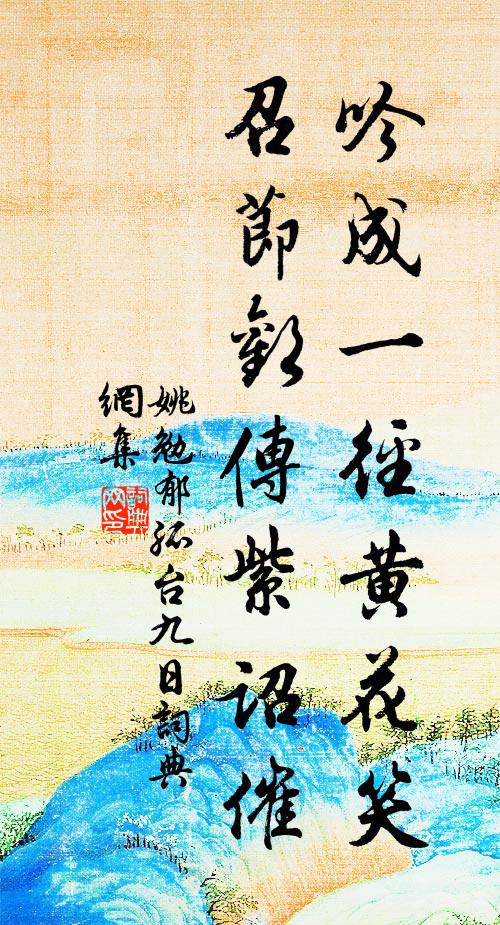 吟成一徑黃花笑
召節歡傳紫詔催
姚勉郁孤台九日詞典
網集
詞典
网印